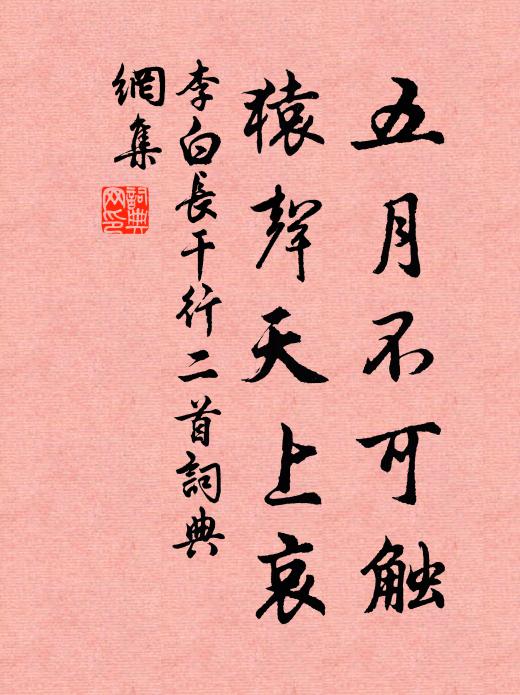 五月不可触
猿聲天上哀
李白長干行二首詞典
網集
詞典
网印